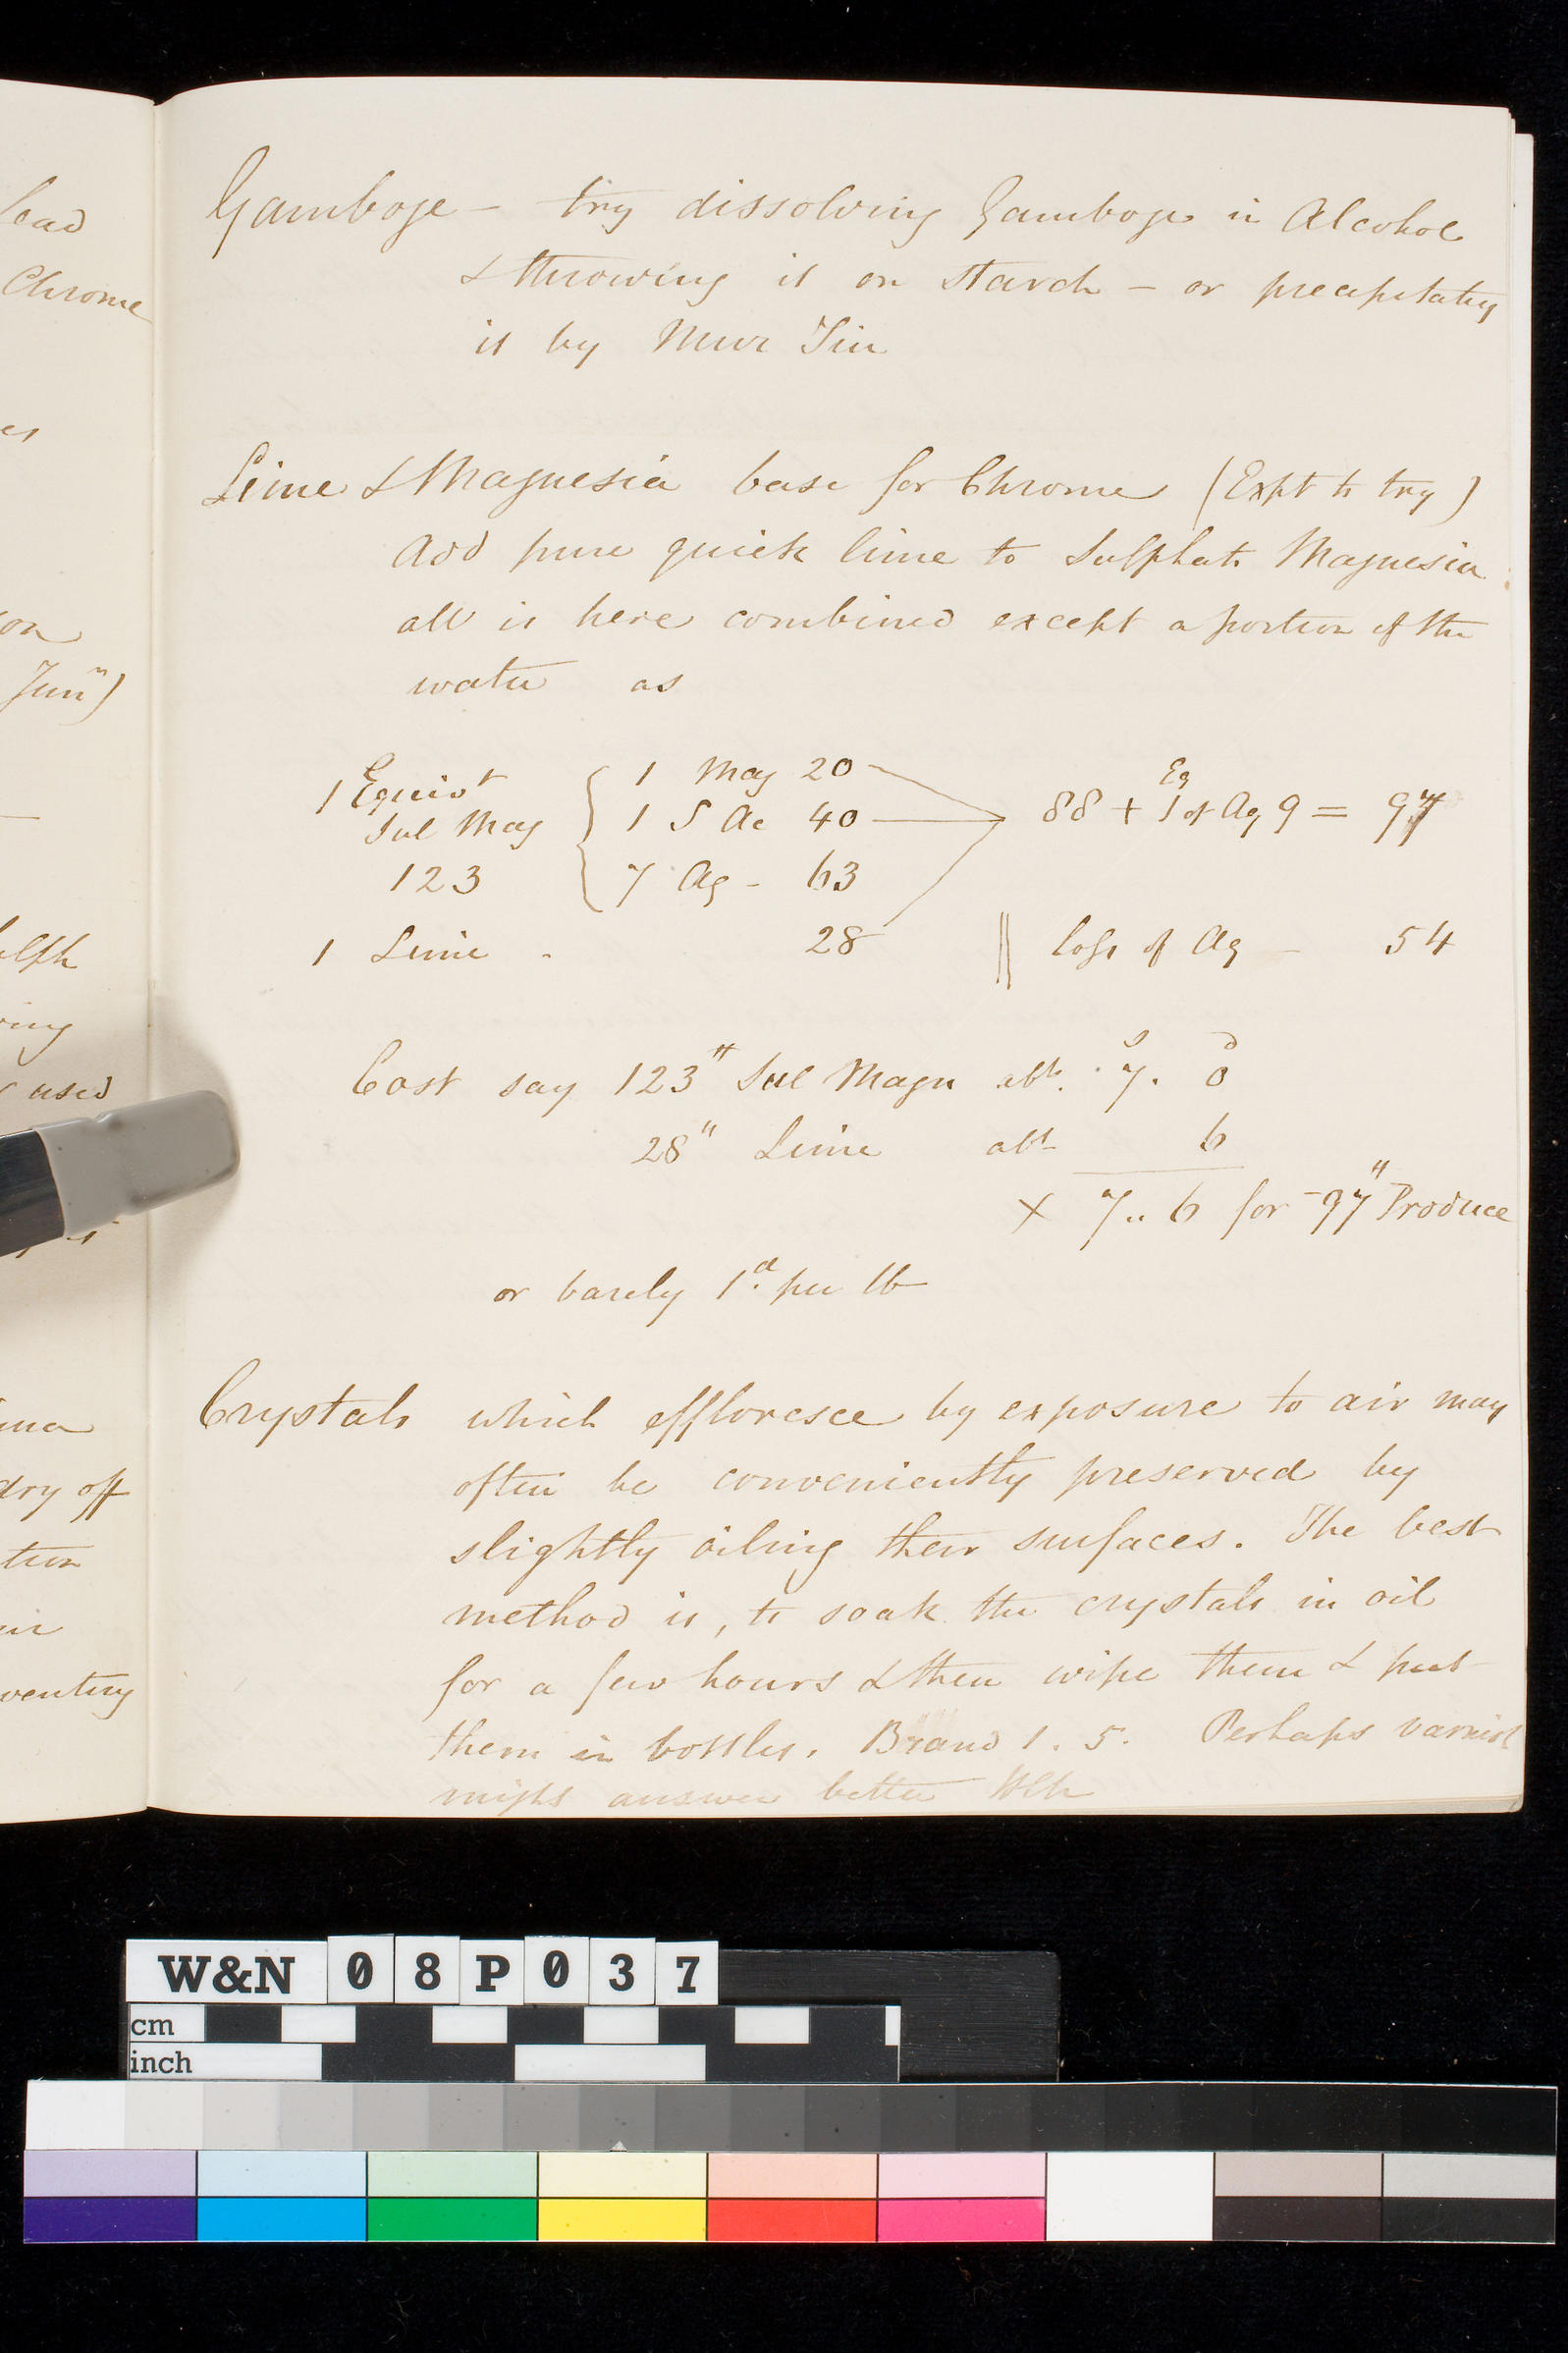 Lead
Chrome
Gamboge – try dissolving Gamboge in Alcohol
& throwing it on starch – or precipitatg
it by Mur Tin
Lime & Magnesia base for Chrome (Expt to try)
Add pure quick lime to Sulphate Magnesia
all is here combined except a portion of the
water as
1 Equivt
Sul Mag
123
1 Mag 20
1 S Ac 40
7 Aq - 63
1 Lime - 28
Eq
88 + 1 of Aq 9 = 97
loss of Aq — 54
s d
Cost say 123" Sul Magn abt. 7. 0
28" Lime abt 6
x 7.. 6 for 97" Produce
or barely 1d. per lb
Crystals which effloresce by exposure to air may
often be conveniently preserved by
slightly oiling their surfaces. The best
method is, to soak the crystals in oil
for a few hours & then wipe them & put
them in bottles. Brand 1. 5. Perhaps varnish
might answer better
used
dry off
W&N 08P037
cm
inch